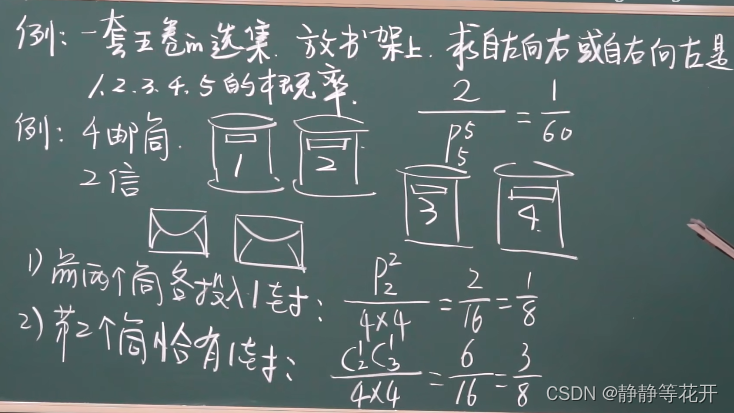 例:一套五卷的选集.放书架上.求自左向右或自右向左是
1.2.3.4.5的概率.
2/P₅⁵ = 1/60
例:4邮筒.
2信
1 2
3 4
1)前两个筒各投入1封: P₂²/4×4 = 2/16 = 1/8
2)第2个筒恰有1封: C₂¹C₃¹/4×4 = 6/16 = 3/8
CSDN @静静等花开